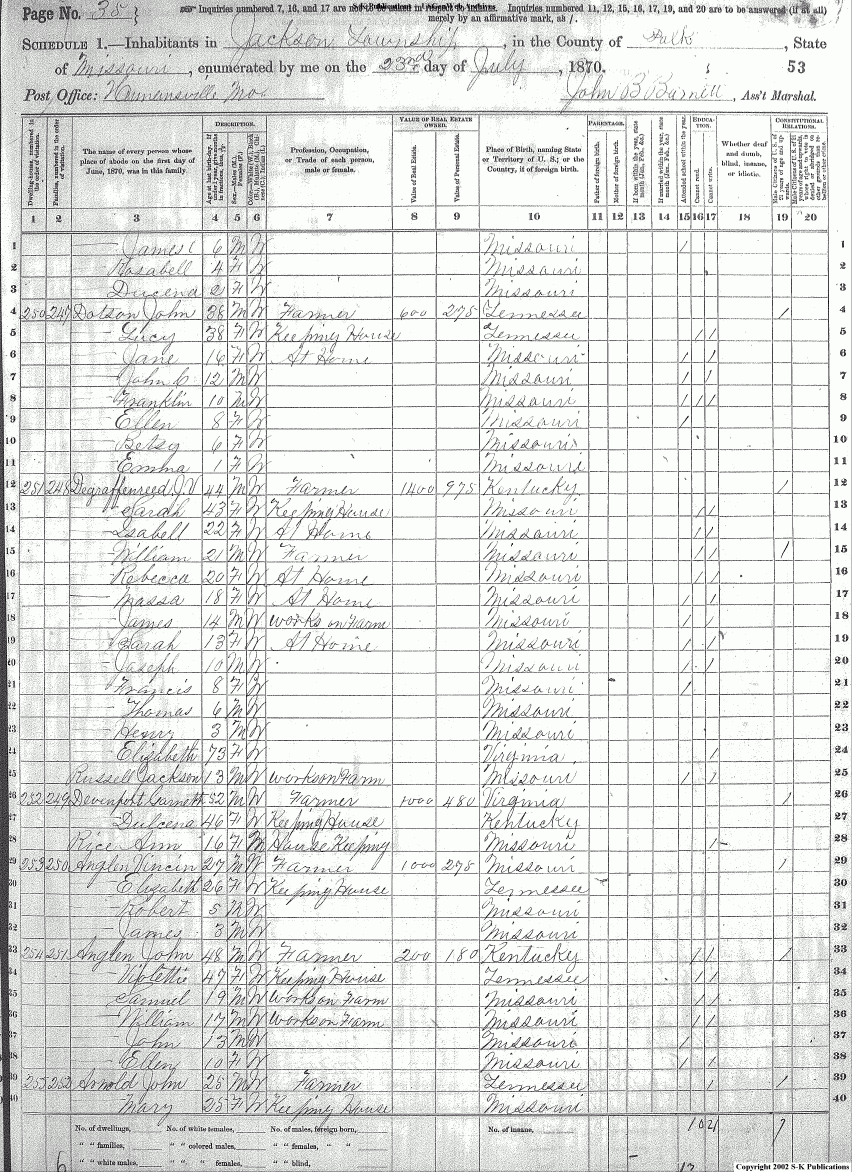 Page No. 38
Inquiries numbered 7, 16, and 17 are not to be asked in respect to infants. Inquiries numbered 11, 12, 15, 16, 17, 19, and 20 are to be answered (if at all)
merely by an affirmative mark, as /.
SCHEDULE 1.—Inhabitants in Jackson Township, in the County of Polk, State
of Missouri, enumerated by me on the 23rd day of July, 1870. 53
Post Office: Humansville Mo John B Barnett, Ass't Marshal.
DESCRIPTION. VALUE OF REAL ESTATE OWNED. PARENTAGE. EDUCATION. CONSTITUTIONAL RELATIONS.
The name of every person whose place of abode on the first day of June, 1870, was in this family
Profession, Occupation, or Trade of each person, male or female.
Value of Real Estate. Value of Personal Estate.
Place of Birth, naming State or Territory of U. S.; or the Country, if of foreign birth.
Father of foreign birth. Mother of foreign birth.
Attended school within the year. Cannot read. Cannot write.
Whether deaf and dumb, blind, insane, or idiotic.
1 2 3 4 5 6 7 8 9 10 11 12 13 14 15 16 17 18 19 20
1 James C 6 M W Missouri / 1
2 Rosabell 4 F W Missouri 2
3 Ducena 2 F W Missouri 3
4 250 247 Dotson John 38 M W Farmer 600 275 Tennessee / 4
5 Lucy 38 F W Keeping House Tennessee / / 5
6 Jane 16 F W At Home Missouri / / 6
7 John C 12 M W Missouri / / 7
8 Franklin 10 M W Missouri / / / 8
9 Ellen 8 F W Missouri / 9
10 Betsy 6 F W Missouri 10
11 Emma 1 F W Missouri 11
12 251 248 Degraffenreed J. V 44 M W Farmer 1400 975 Kentucky / 12
13 Sarah 43 F W Keeping House Missouri / / 13
14 Isabell 22 F W At Home Missouri / / 14
15 William 21 M W Farmer Missouri / / / 15
16 Rebecca 20 F W At Home Missouri / / 16
17 Massa 18 F W At Home Missouri / / 17
18 James 14 M W works on Farm Missouri / / 18
19 Sarah 13 F W At Home Missouri / / / 19
20 Joseph 10 M W Missouri / / 20
21 Francis 8 F W Missouri / 21
22 Thomas 6 M W Missouri 22
23 Henry 3 M W Missouri 23
24 Elizabeth 73 F W Virginia / 24
25 Russell Jackson 13 M W works on Farm Missouri / / 25
26 252 249 Devenport Garnett 52 M W Farmer 1000 480 Virginia / 26
27 Dulcena 46 F W Keeping House Kentucky 27
28 Rice Ann 16 F M House Keeping Missouri / 28
29 253 250 Anglen Vincin 27 M W Farmer 1000 275 Missouri / 29
30 Elizabeth 26 F W Keeping House Tennessee 30
31 Robert 5 M W Missouri 31
32 James 3 M W Missouri 32
33 254 251 Anglen John 48 M W Farmer 200 180 Kentucky / / / 33
34 Violettie 47 F W Keeping House Tennessee / / 34
35 Samuel 19 M W Works on Farm Missouri / / 35
36 William 17 M W Works on Farm Missouri / / 36
37 John 13 M W Missouri / 37
38 Ellen 10 F W Missouri / / 38
39 255 252 Arnold John 25 M W Farmer Tennessee / / 39
40 Mary 25 F W Keeping House Missouri 40
No. of dwellings, No. of white females, No. of males, foreign born, No. of insane,
" " families, " " colored males, " " females, " "
" " white males, " " females, " " blind,
Copyright 2002 S-K Publications